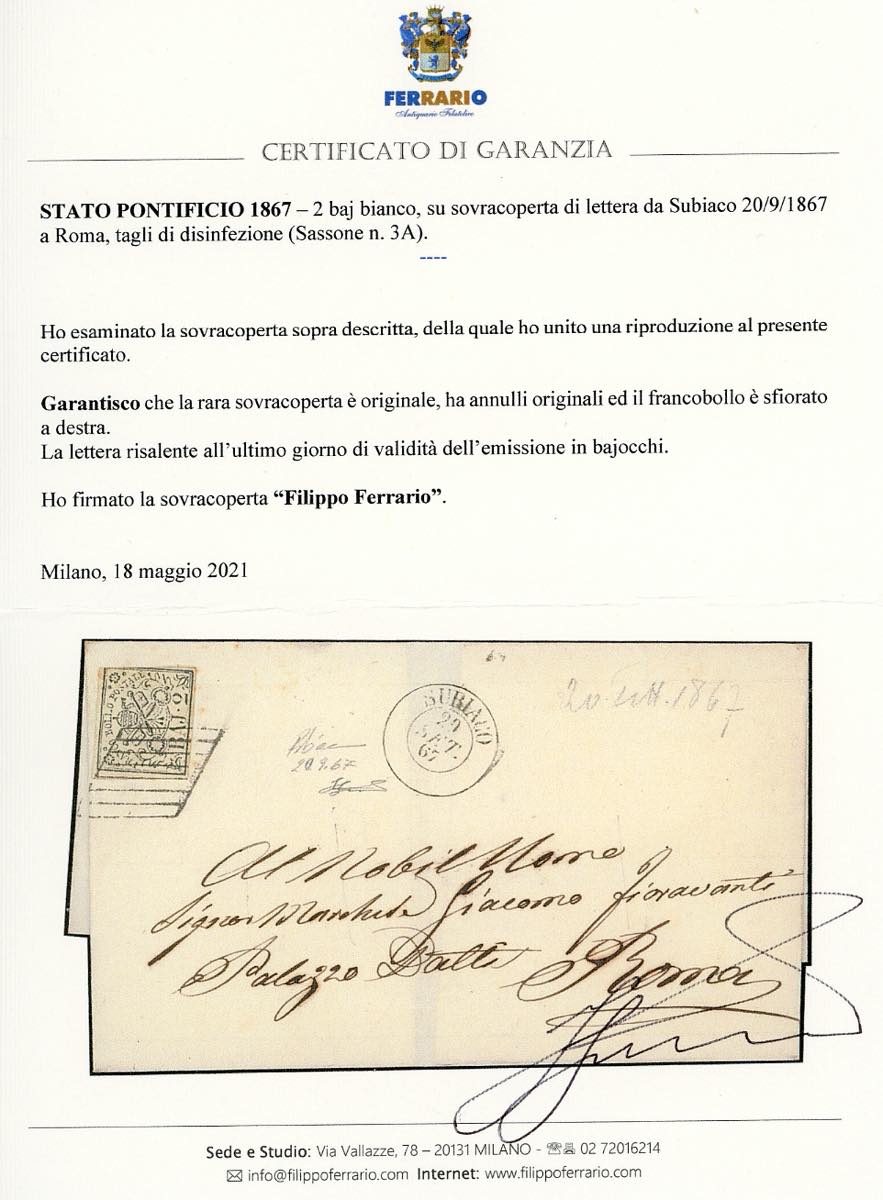 FERRARIO
Antiquario Filatelico
CERTIFICATO DI GARANZIA
STATO PONTIFICIO 1867 – 2 baj bianco, su sovracoperta di lettera da Subiaco 20/9/1867
a Roma, tagli di disinfezione (Sassone n. 3A).
----
Ho esaminato la sovracoperta sopra descritta, della quale ho unito una riproduzione al presente
certificato.
Garantisco che la rara sovracoperta è originale, ha annulli originali ed il francobollo è sfiorato
a destra.
La lettera risalente all’ultimo giorno di validità dell’emissione in bajocchi.
Ho firmato la sovracoperta “Filippo Ferrario”.
Milano, 18 maggio 2021
BOLLO POSTALE
BAJ. 2
SUBIACO
20
SET.
67
20 sett. 1867
20.9.67
Al Nobil Uomo
Signor Marchese Giacomo Fioravanti
Palazzo Roma
Sede e Studio: Via Vallazze, 78 – 20131 MILANO - ☏ 02 72016214
✉ info@filippoferrario.com Internet: www.filippoferrario.com